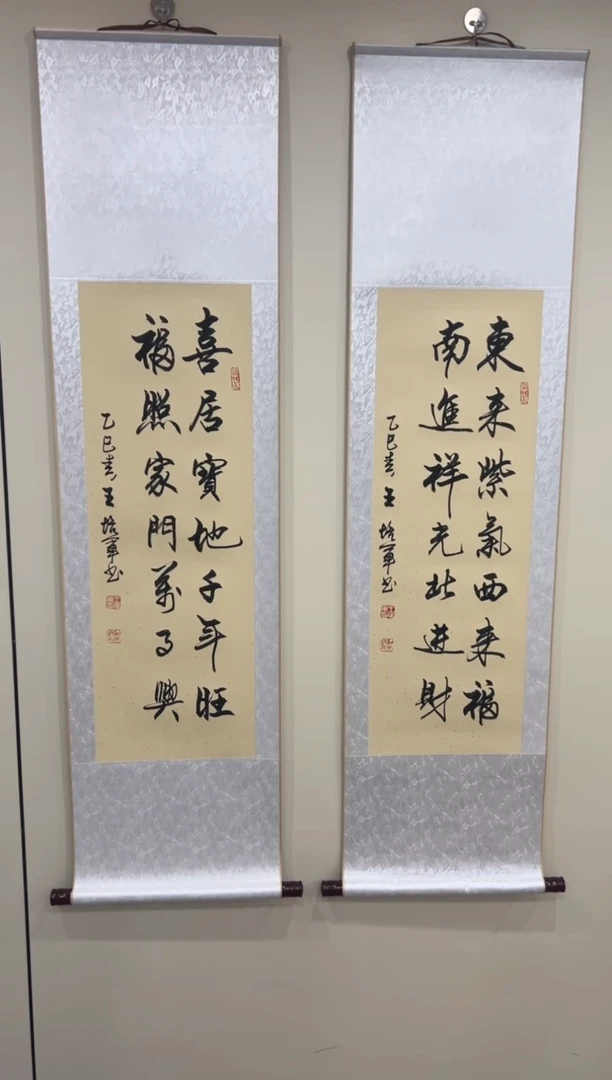 東来紫氣西来福
南進祥光北進財
乙巳春王培軍书
喜居寶地千年旺
福照家門萬事興
乙巳春王培軍书